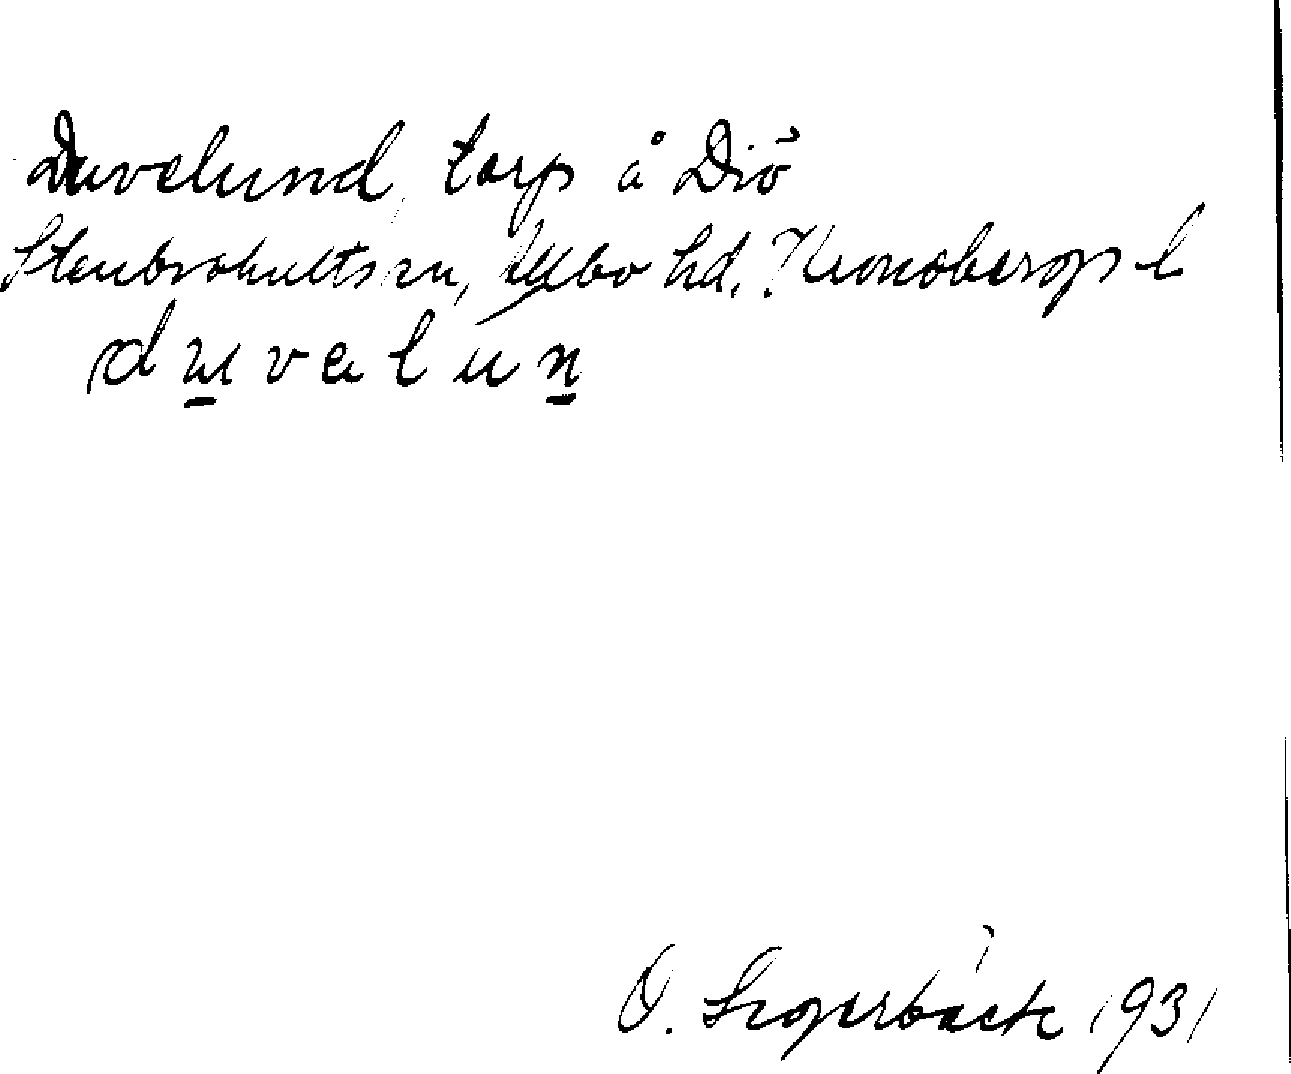 Duvelund, torp å Diö
Stenbrohults sn, Allbo hd. Kronobergs l
duvelun
O. Segerbäck 1931